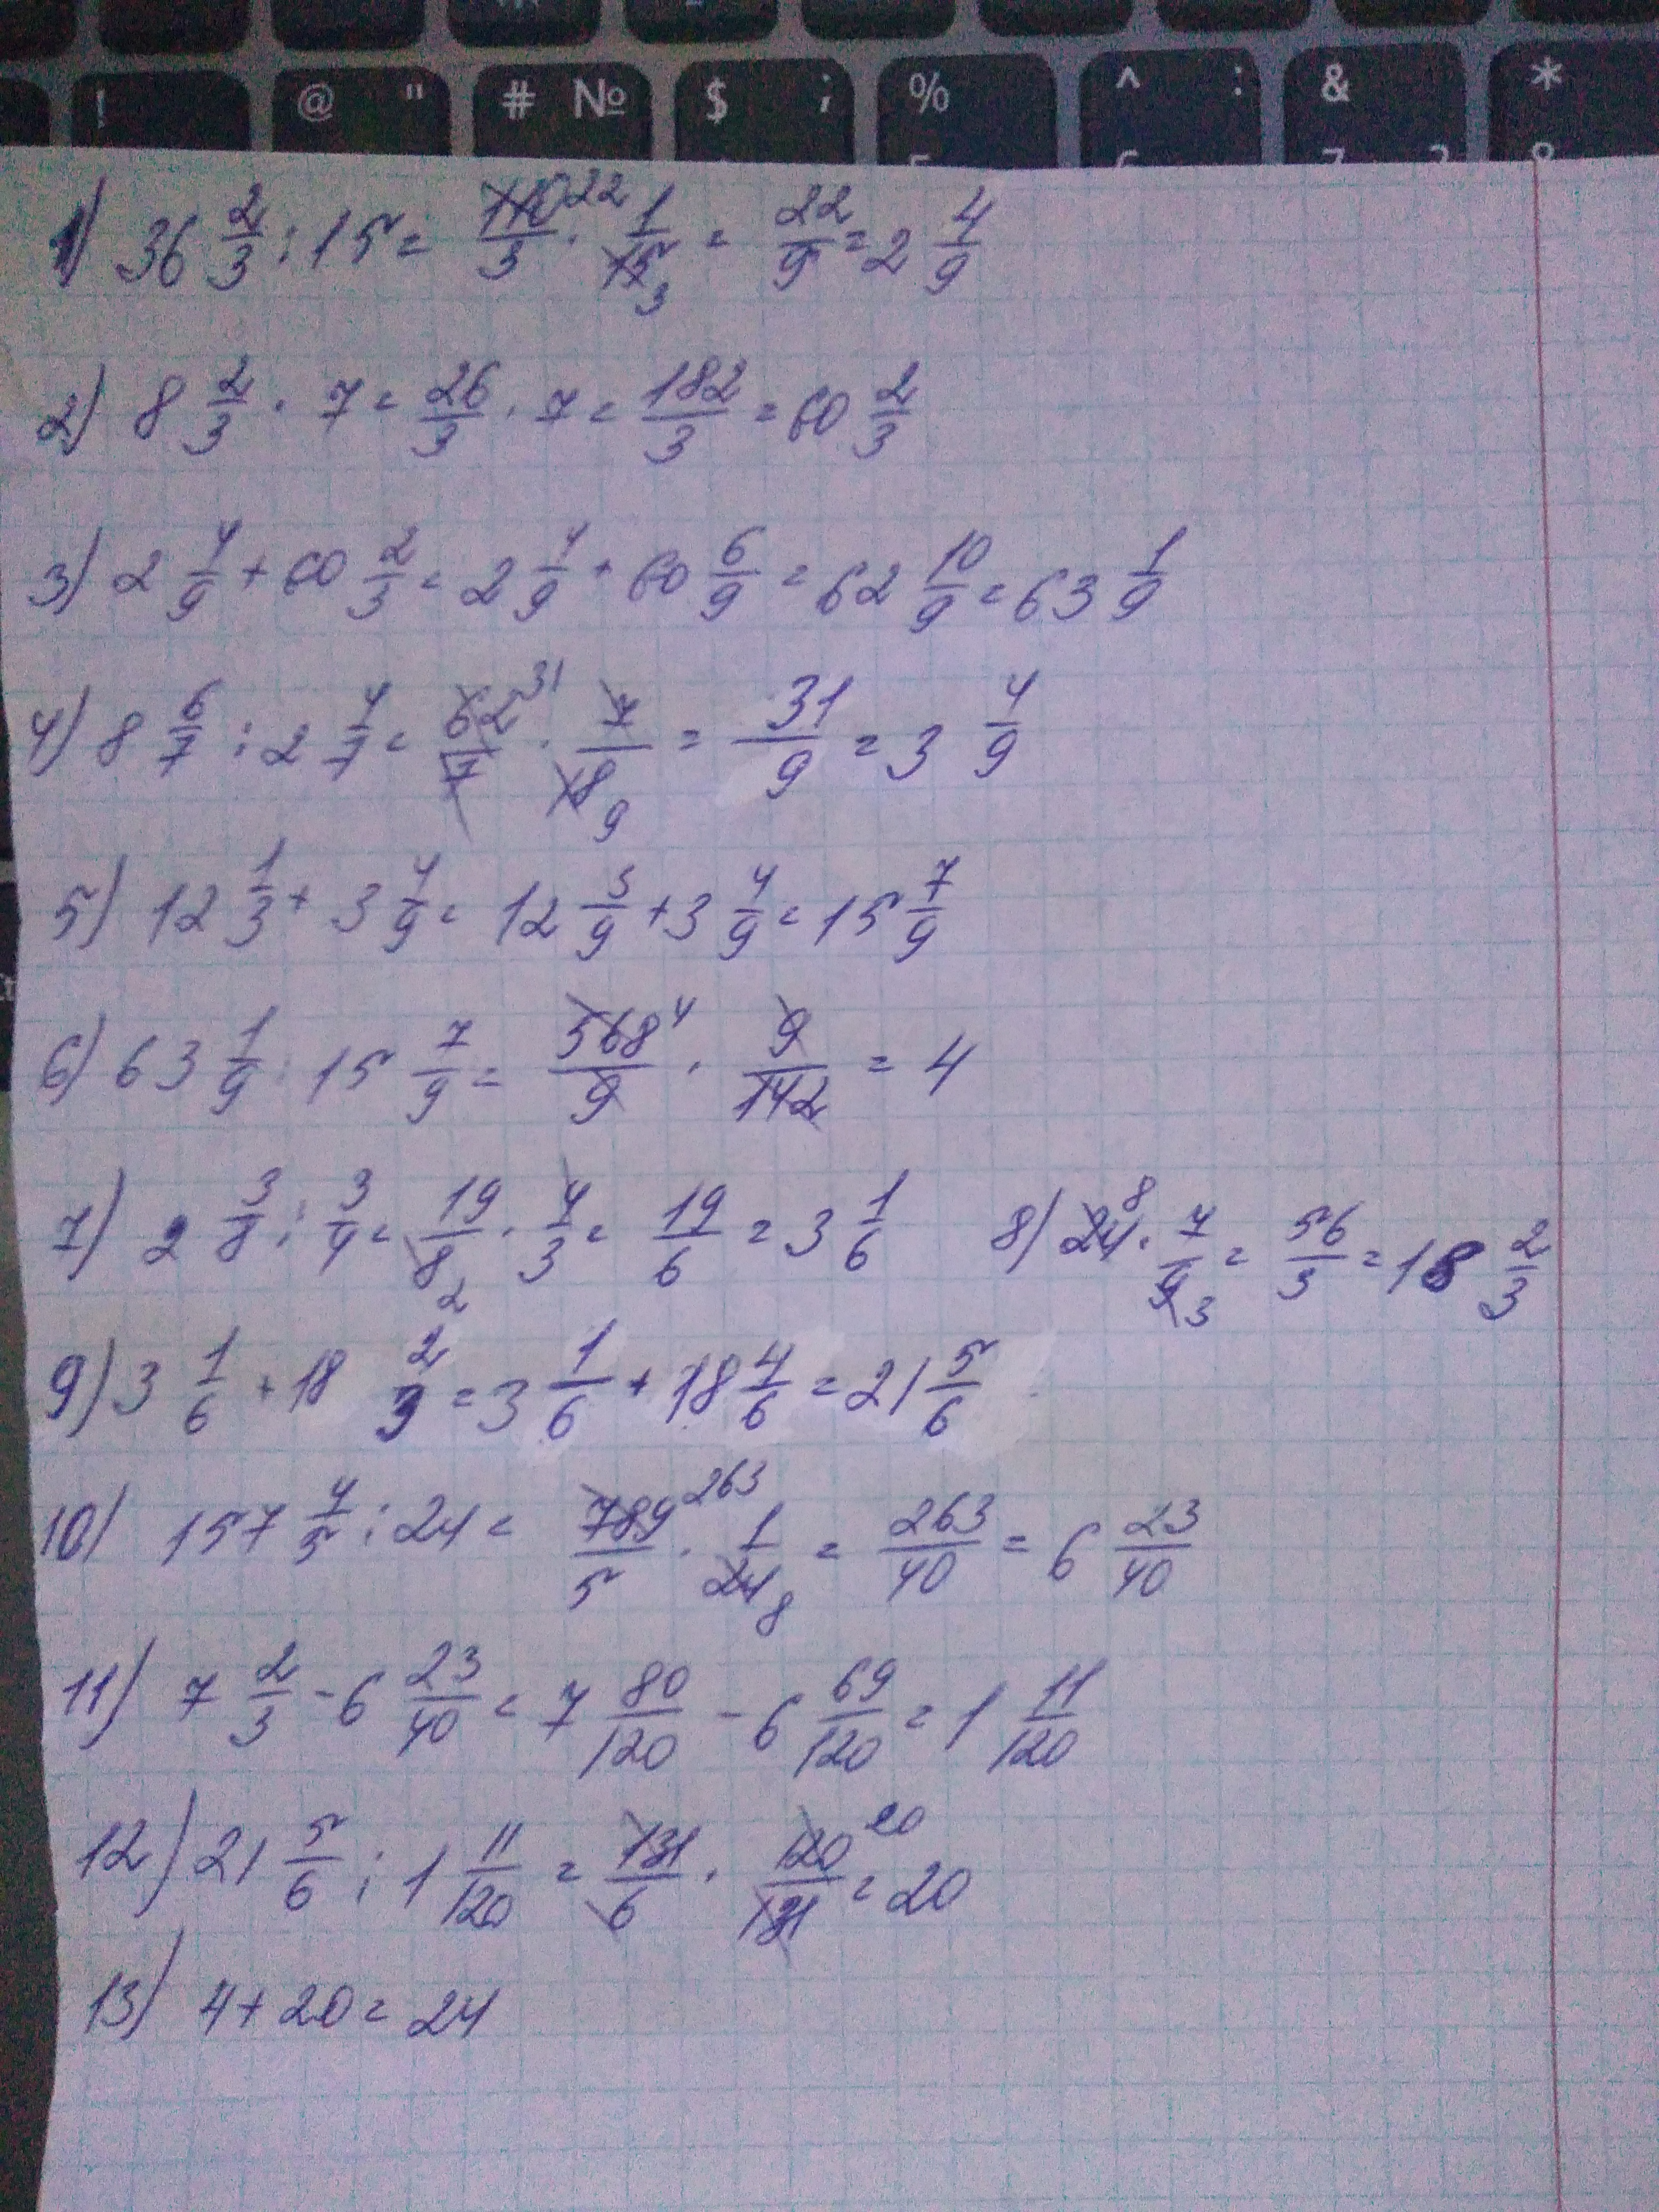 ! @ " # № $ ; % ^ : & *
1) 36 2/3 : 15 = 110/3 22 · 1/15 3 = 22/9 = 2 4/9
2) 8 2/3 · 7 = 26/3 · 7 = 182/3 = 60 2/3
3) 2 4/9 + 60 2/3 = 2 4/9 + 60 6/9 = 62 10/9 = 63 1/9
4) 8 6/7 : 2 4/7 = 62/7 31 · 7/18 9 = 31/9 = 3 4/9
5) 12 1/3 + 3 4/9 = 12 3/9 + 3 4/9 = 15 7/9
6) 63 1/9 : 15 7/9 = 568/9 4 · 9/142 = 4
7) 2 3/8 : 3/4 = 19/8 2 · 4/3 = 19/6 = 3 1/6 8) 24 8 · 7/9 3 = 56/3 = 18 2/3
9) 3 1/6 + 18 2/3 = 3 1/6 + 18 4/6 = 21 5/6
10) 157 4/5 : 24 = 789/5 263 · 1/24 8 = 263/40 = 6 23/40
11) 7 2/3 - 6 23/40 = 7 80/120 - 6 69/120 = 1 11/120
12) 21 5/6 : 1 11/120 = 131/6 · 120/131 20 = 20
13) 4 + 20 = 24